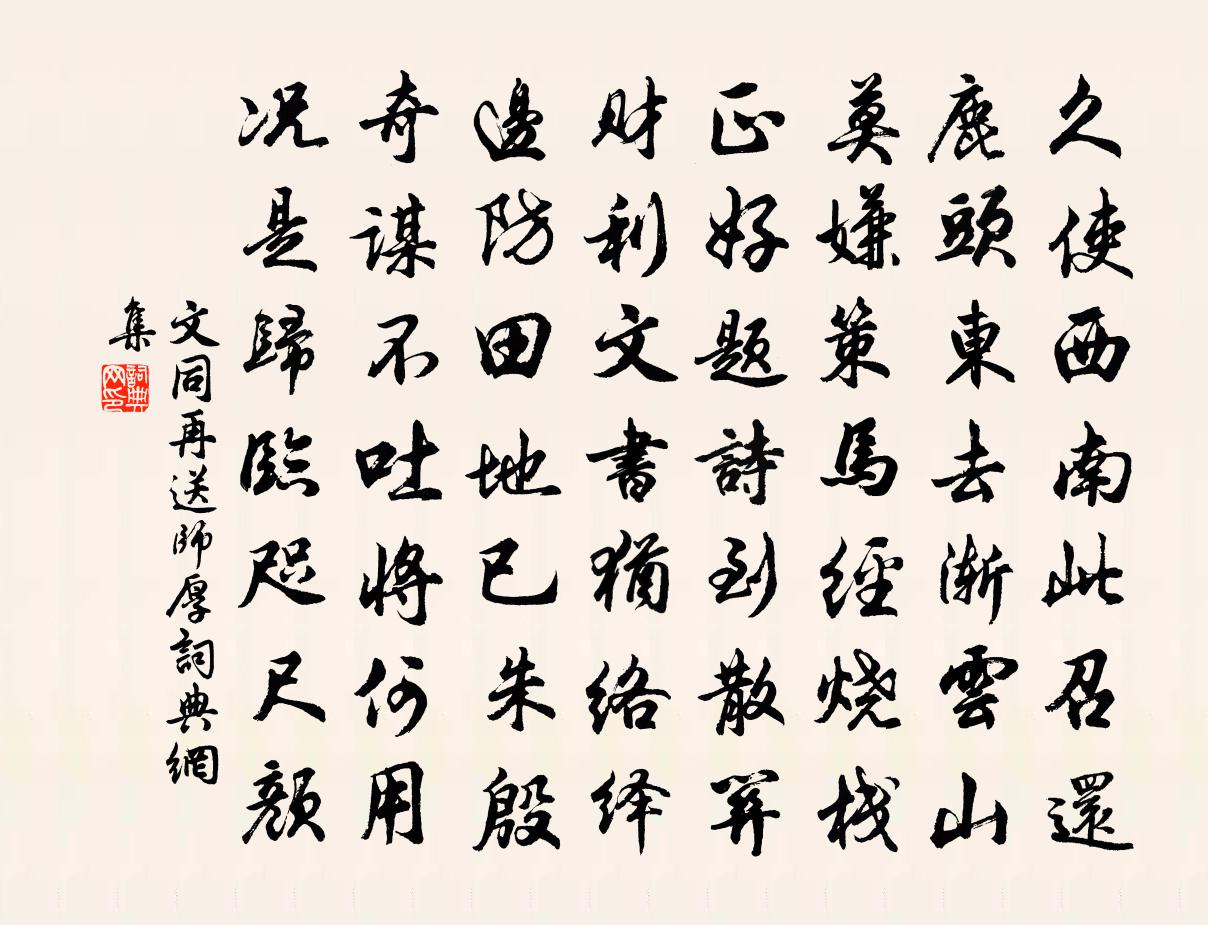 久使西南此召還
鹿頭東去漸雲山
莫嫌策馬經燒栈
正好題詩到散関
财利文書猶络绎
邊防田地已朱殷
奇謀不吐將何用
况是歸臨咫尺顏
文同再送師厚詞典網
集
詞典
网印